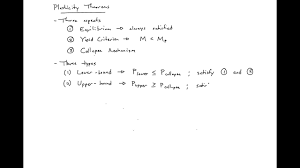 Plasticity Theorems
- Three aspects
① Equilibrium → always satisfied
② Yield Criterion → M < Mp
③ Collapse Mechanism
- Three types
(1) Lower-bound → Plower ≤ Pcollapse ; satisfy ① and ②
(2) Upper-bound → Pupper ≥ Pcollapse ; sati